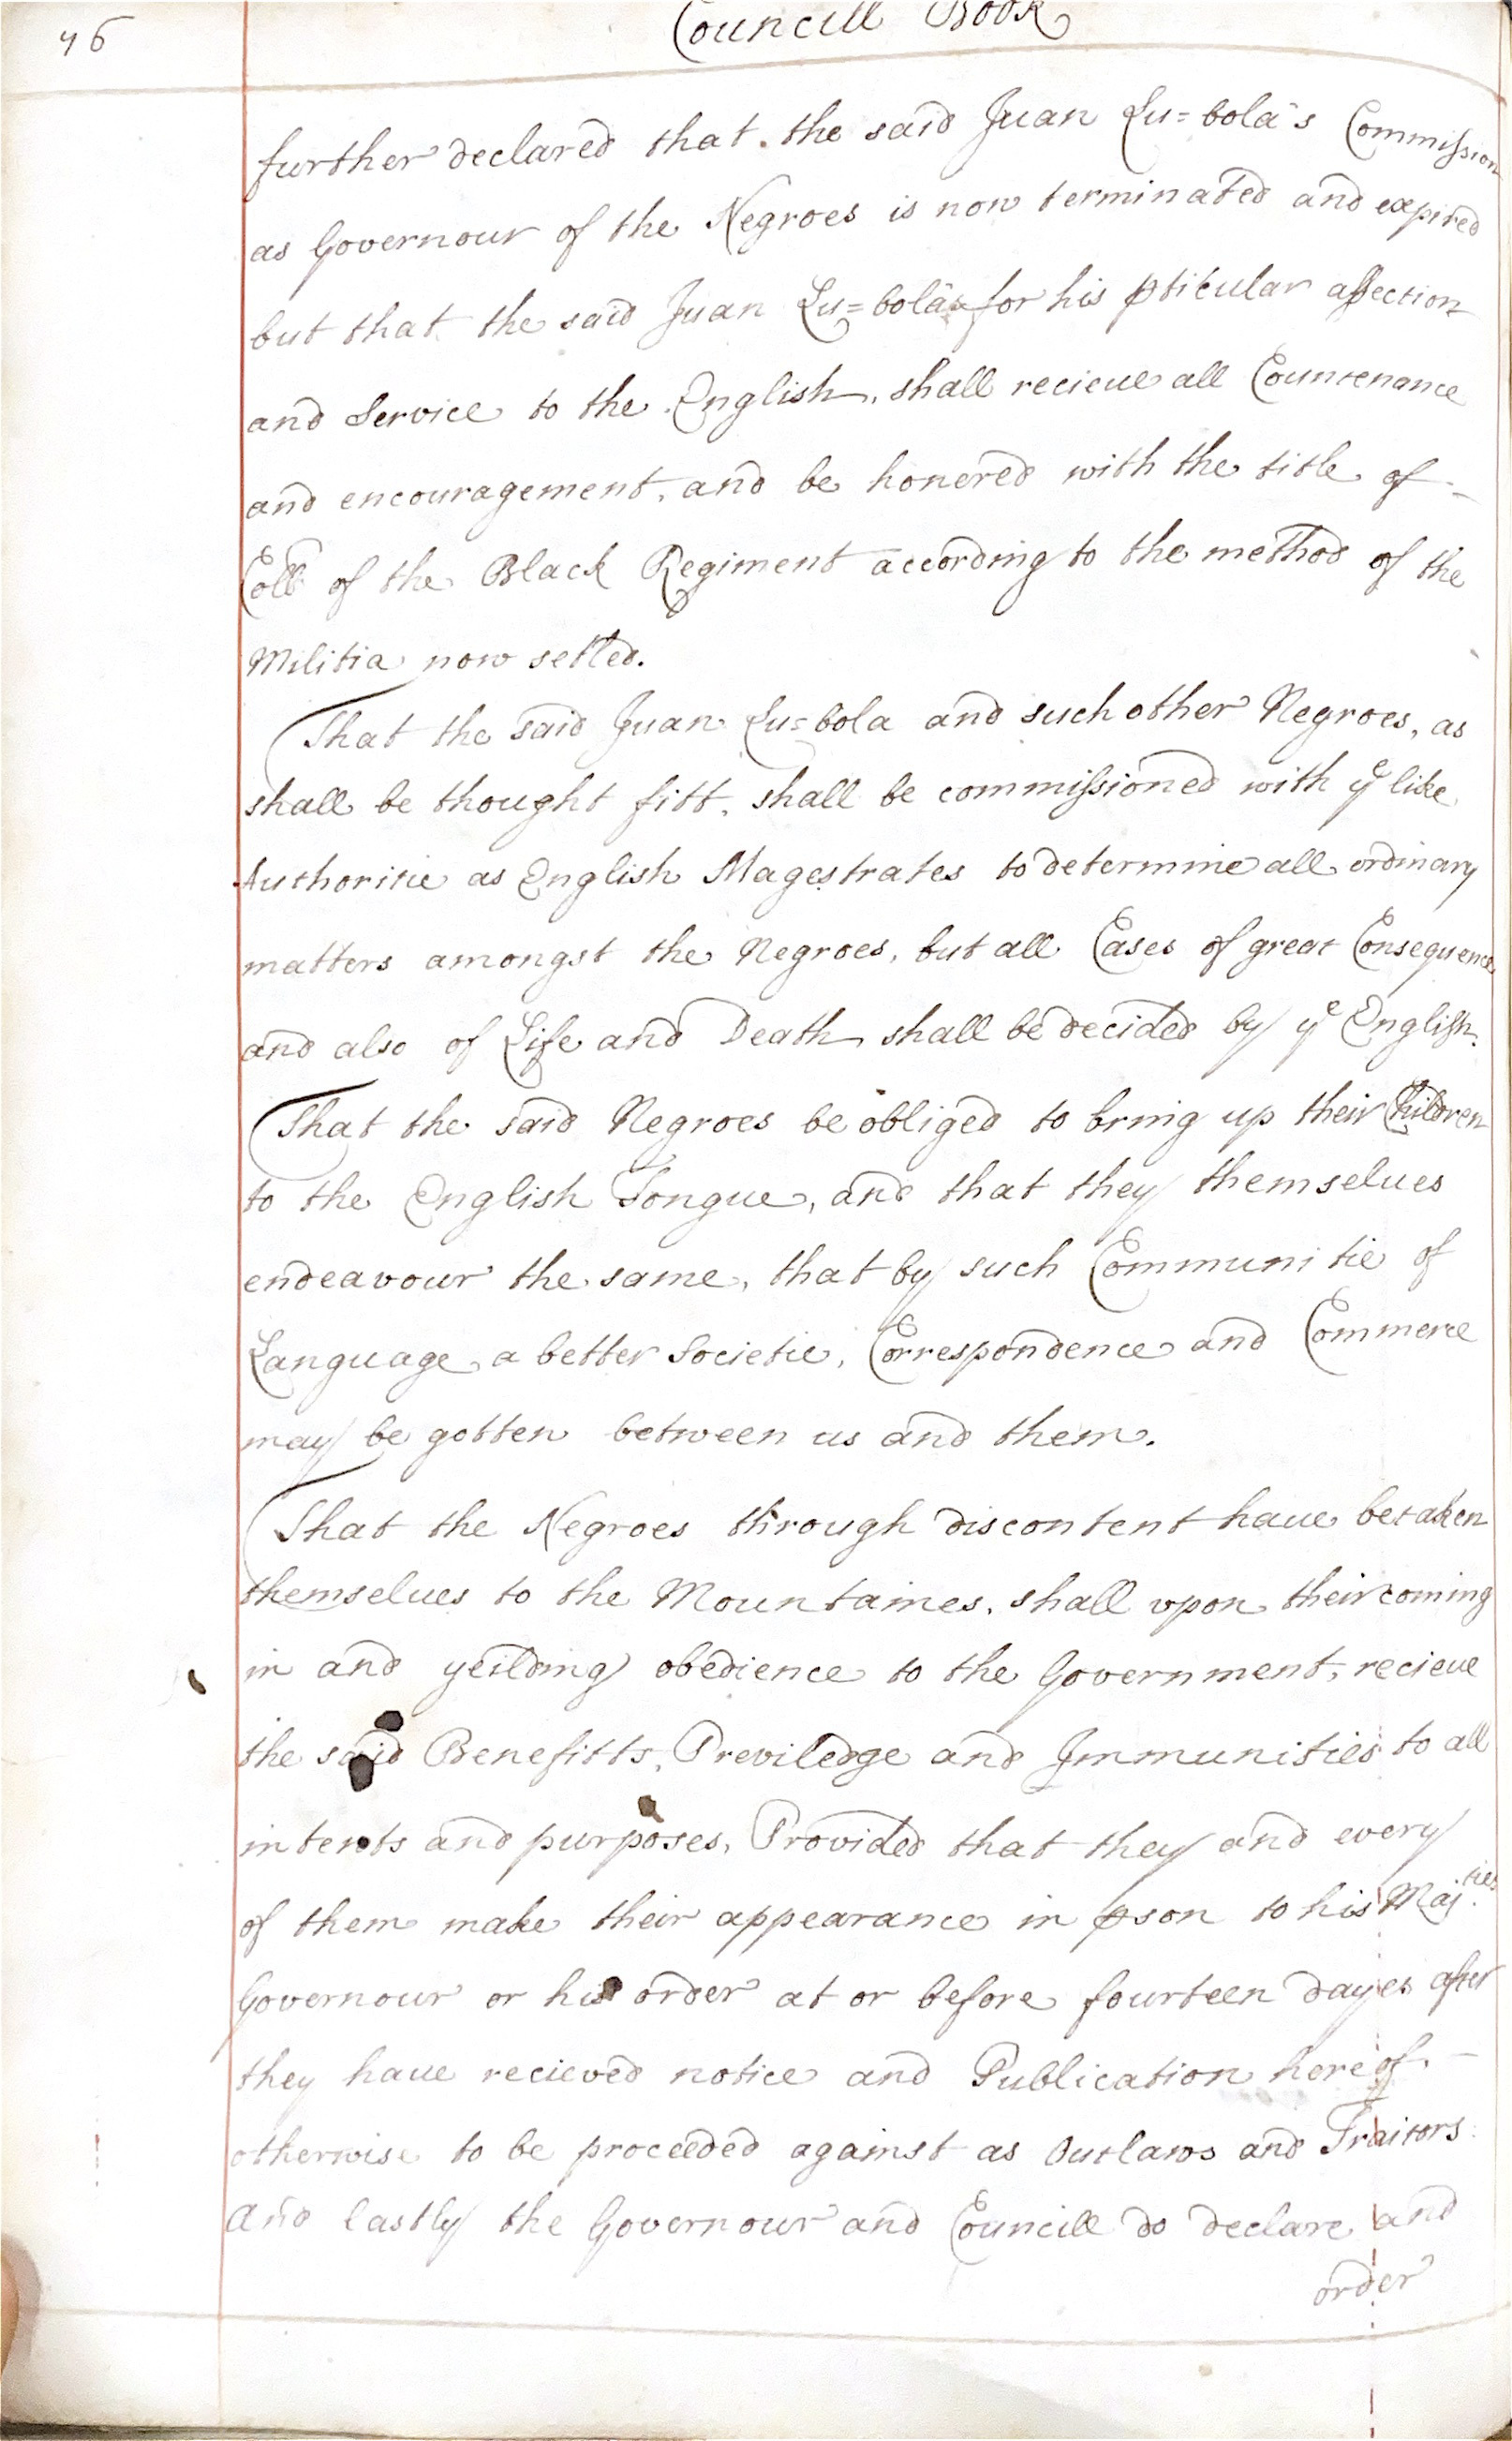 76
Councill Book
further declared that the said Juan Lu=bola's Commission
as Governour of the Negroes is now terminated and expired
but that the said Juan Lu=bola for his pticular affection
and Service to the English, shall recieue all Countenance
and encouragement, and be honered with the title of -
Coll of the Black Regiment according to the method of the
Militia now setled.
That the said Juan Lu=bola and such other Negroes, as
shall be thought fitt, shall be commissioned with ye like
Authoritie as English Magestrates to determine all ordinary
matters amongst the Negroes, but all Cases of great Consequence
and also of Life and Death shall be decided by ye English.
That the said Negroes be obliged to bring up their Children
to the English Tongue, and that they themselues
endeavour the same, that by such Communitie of
Language a better Societie, Correspondence and Commerce
may be gotten between us and them.
That the Negroes through discontent haue betaken
themselues to the Mountaines, shall vpon their coming
in and yeilding obedience to the Government, recieue
the said Benefitts, Previledge and Immunities to all
intents and purposes, Provided that they and every
of them make their appearance in pson to his Maj.ties
Governour or his order at or before fourteen dayes after
they haue recieved notice and Publication hereof -
otherwise to be proceeded against as Outlaws and Traitors.
And lastly the Governour and Councill do declare and
order